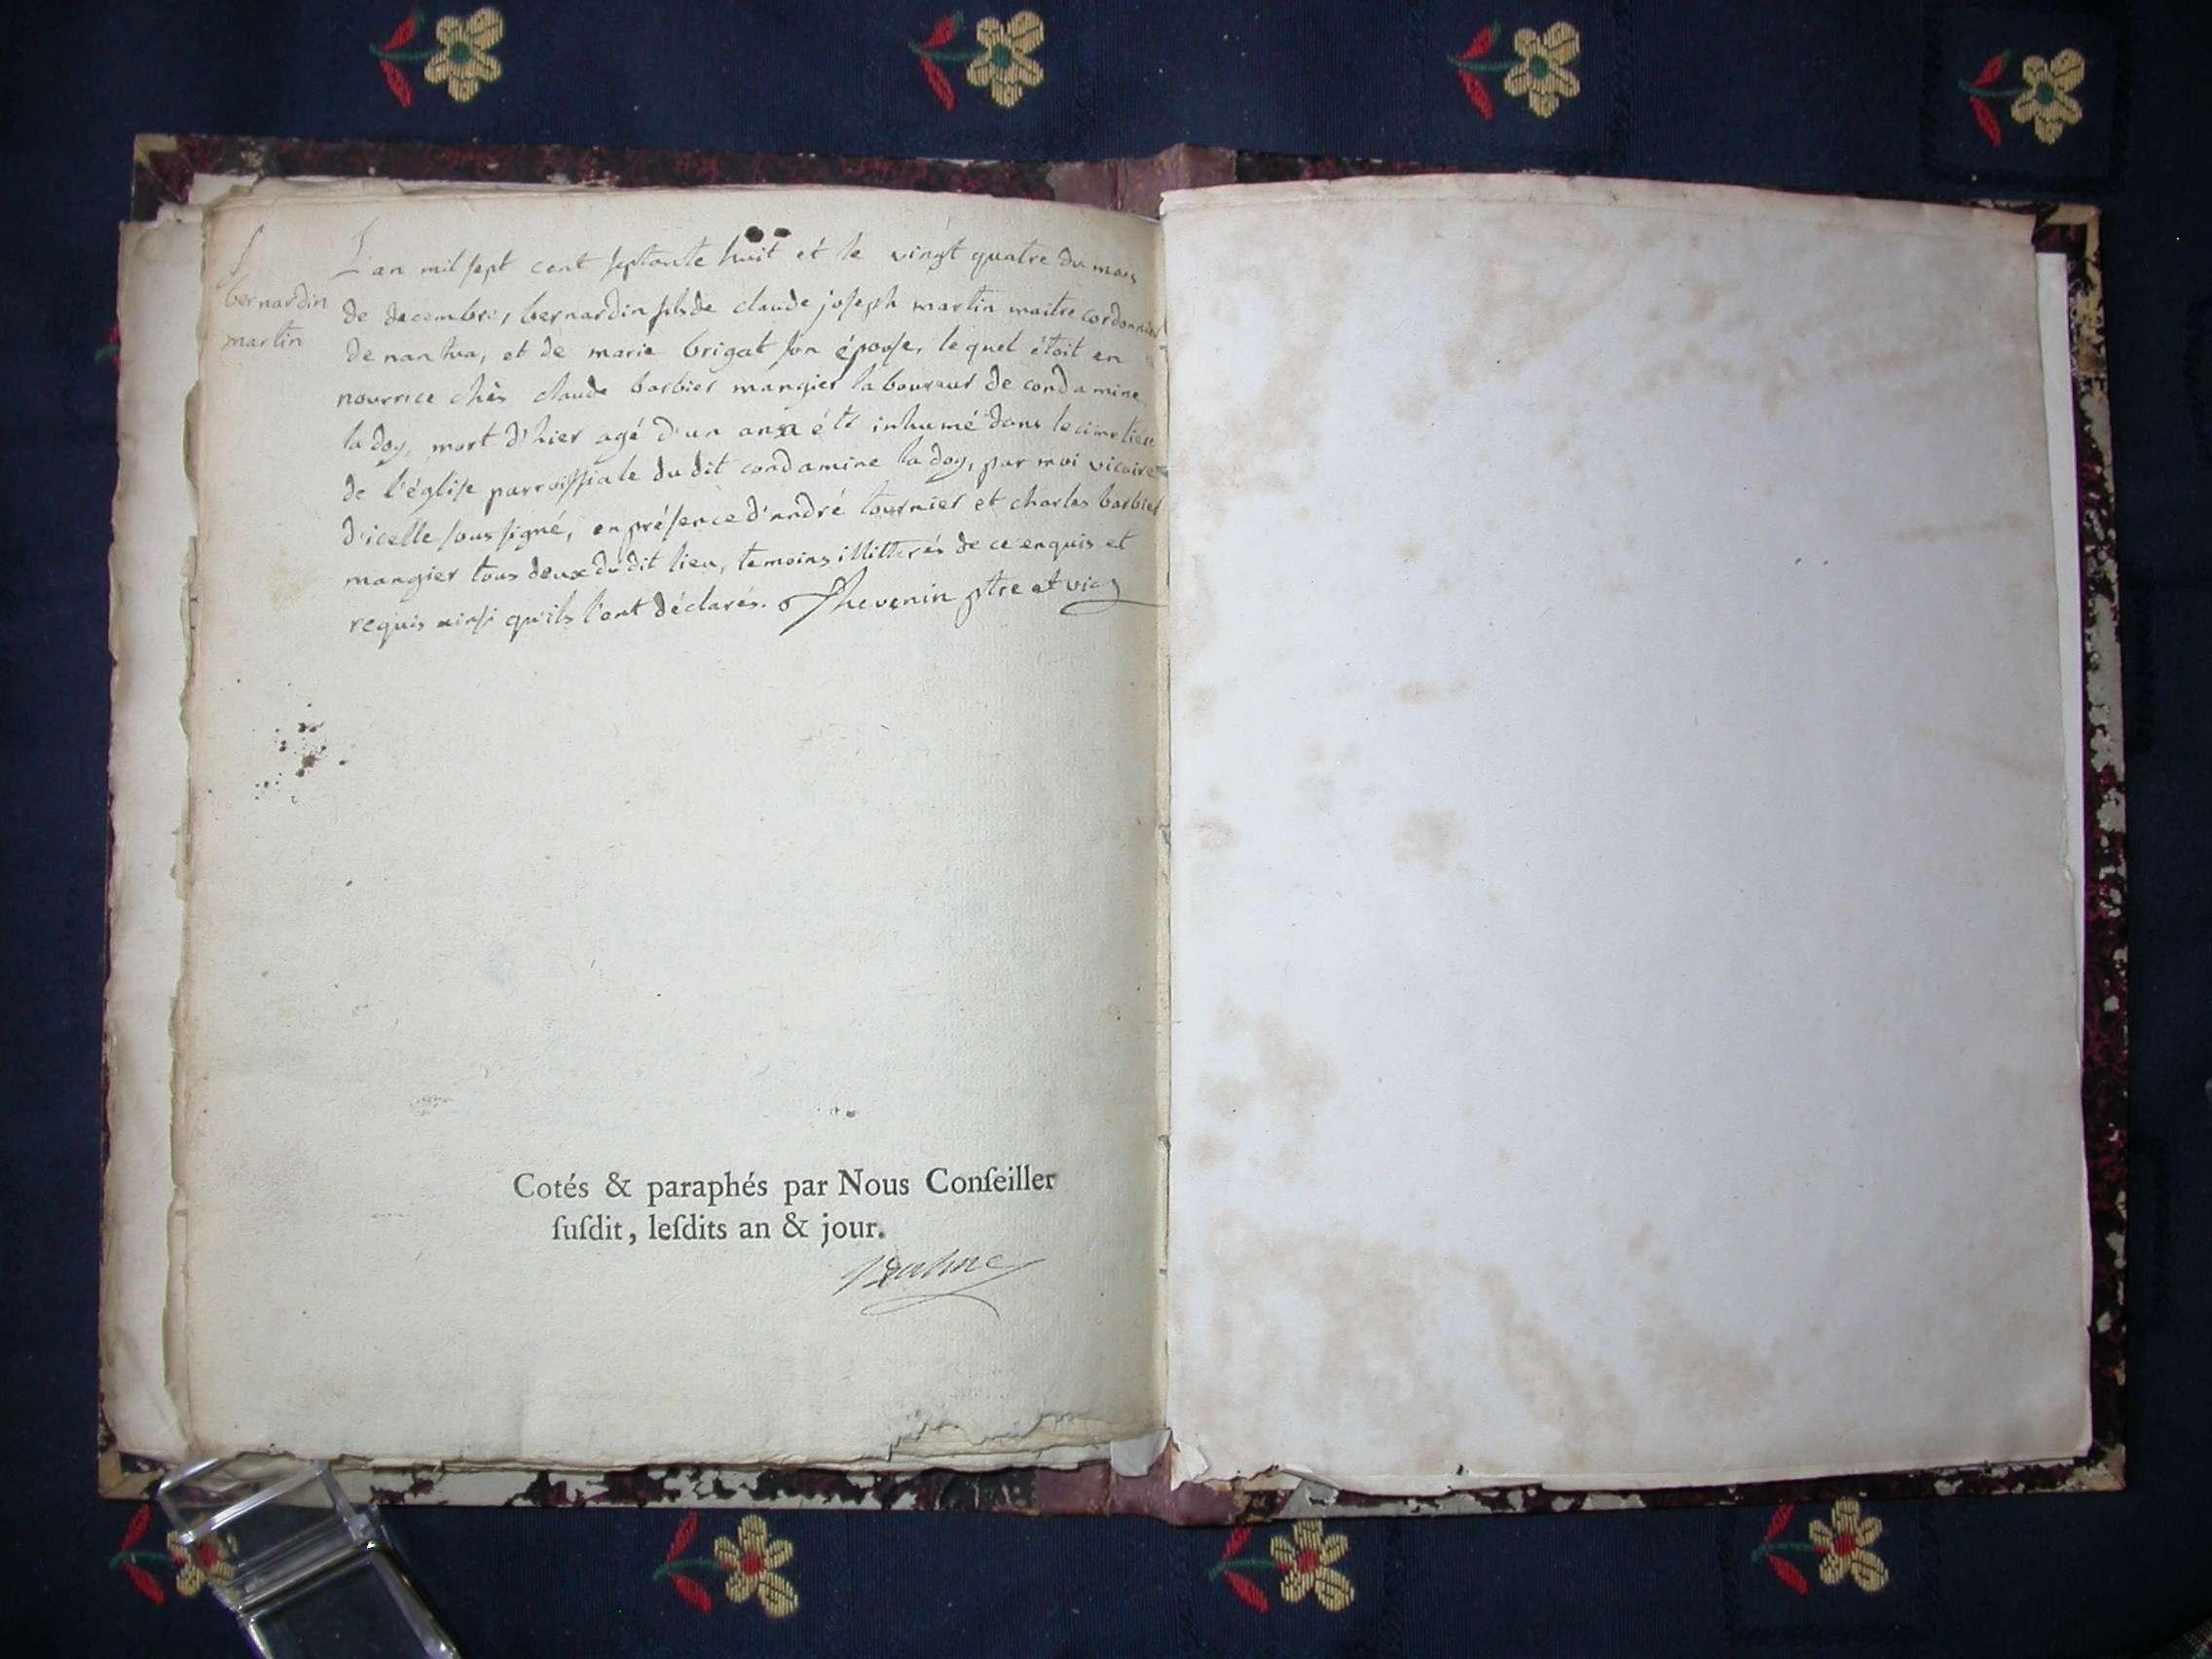 S
bernardin
martin
L'an mil sept cent septante huit et le vingt quatre du mois
de decembre, bernardin fils de claude joseph martin maitre cordonnier
de nantua, et de marie brigat son épouse, lequel étoit en
nourrice chés claude barbier mangier laboureur de condamine
la doy, mort d'hier agé d'un an a été inhumé dans le cimetiere
de l'église parroissiale du dit condamine la doy, par moi vicaire
d'icelle soussigné, en présence d'andré tournier et charles barbier
mangier tous deux du dit lieu, temoins illitterés de ce enquis et
requis ainsi qu'ils l'ont déclarés. Thevenin ptre et vic
Cotés & paraphés par Nous Conſeiller
ſuſdit, leſdits an & jour.